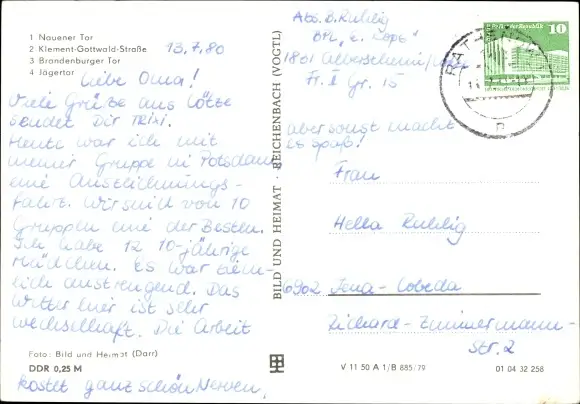 1 Nauener Tor
2 Klement-Gottwald-Straße
3 Brandenburger Tor
4 Jägertor
13.7.80
Liebe Oma!
Viele Grüße aus Lötze
sendet Dir Trixi.
Heute war ich mit
meiner Gruppe in Potsdam
eine Auszeichnungs-
fahrt. Wir sind von 10
Gruppen eine der Besten.
Ich habe 12 10-jährige
Mädchen. Es war ziem-
lich anstrengend. Das
Wetter hier ist sehr
wechselhaft. Die Arbeit
Foto: Bild und Heimat (Darr)
DDR 0,25 M
kostet ganz schön Nerven,
BILD UND HEIMAT · REICHENBACH (VOGTL)
Abs. B. Ruhlig
BPL
1801
Fr. II Gr. 15
aber sonst macht
es Spaß!
RATHENOW
10
Frau
Hella Ruhlig
6902 Jena-Lobeda
Richard-Zimmermann-
Str. 2
V 11 50 A 1/B 885/79
01 04 32 258